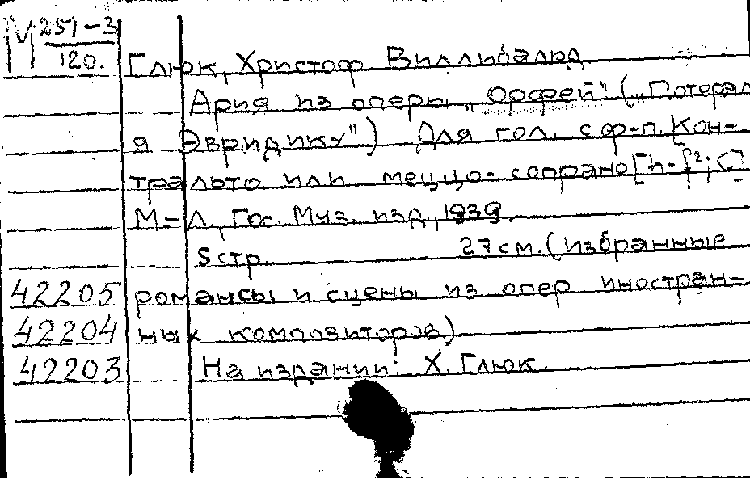 М 251-3
120.
Глюк, Христоф Виллибальд
Ария из оперы „Орфей" („Потерял
я Эвридику") Для гол. с ф-п. Кон-
тральто или меццо-сопрано [h-f²; C]
М-Л, Гос. Муз. изд, 1939.
5стр. 27см. (избранные
42205 романсы и сцены из опер иностран-
42204 ных композиторов)
42203 На издании: Х. Глюк.